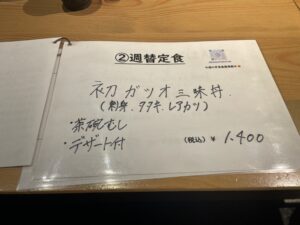 ②週替定食
初ガツオ三味丼
(刺身、タタキ、レアカツ)
・茶碗むし
・デザート付
(税込) ¥ 1,400